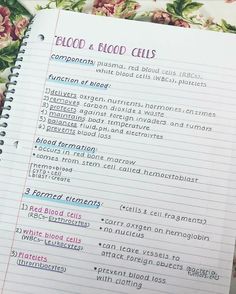 "BLOOD & BLOOD CELLS
components: plasma, red blood cells (RBCs),
white blood cells (WBCs), platelets
function of blood:
1) delivers oxygen, nutrients, hormones, enzymes
2) removes carbon dioxide & waste
3) protects against foreign invaders and tumors
4) maintains body temperature
5) balances fluid, pH, and electrolytes
6) prevents blood loss
blood formation:
• occurs in red bone marrow
• comes from stem cell called hemocytoblast
hemo = blood
cyto = cell
blast = create
3 formed elements:
(*cells & cell fragments)
1) Red blood cells
(RBCs- Erythrocytes)
• carry oxygen on hemoglobin
• no nucleus
2) white blood cells
(WBCs- Leukocytes)
• can leave vessels to
attack foreign objects (bacteria,
3) Platelets
(Thrombocytes)
• prevent blood loss
with clotting